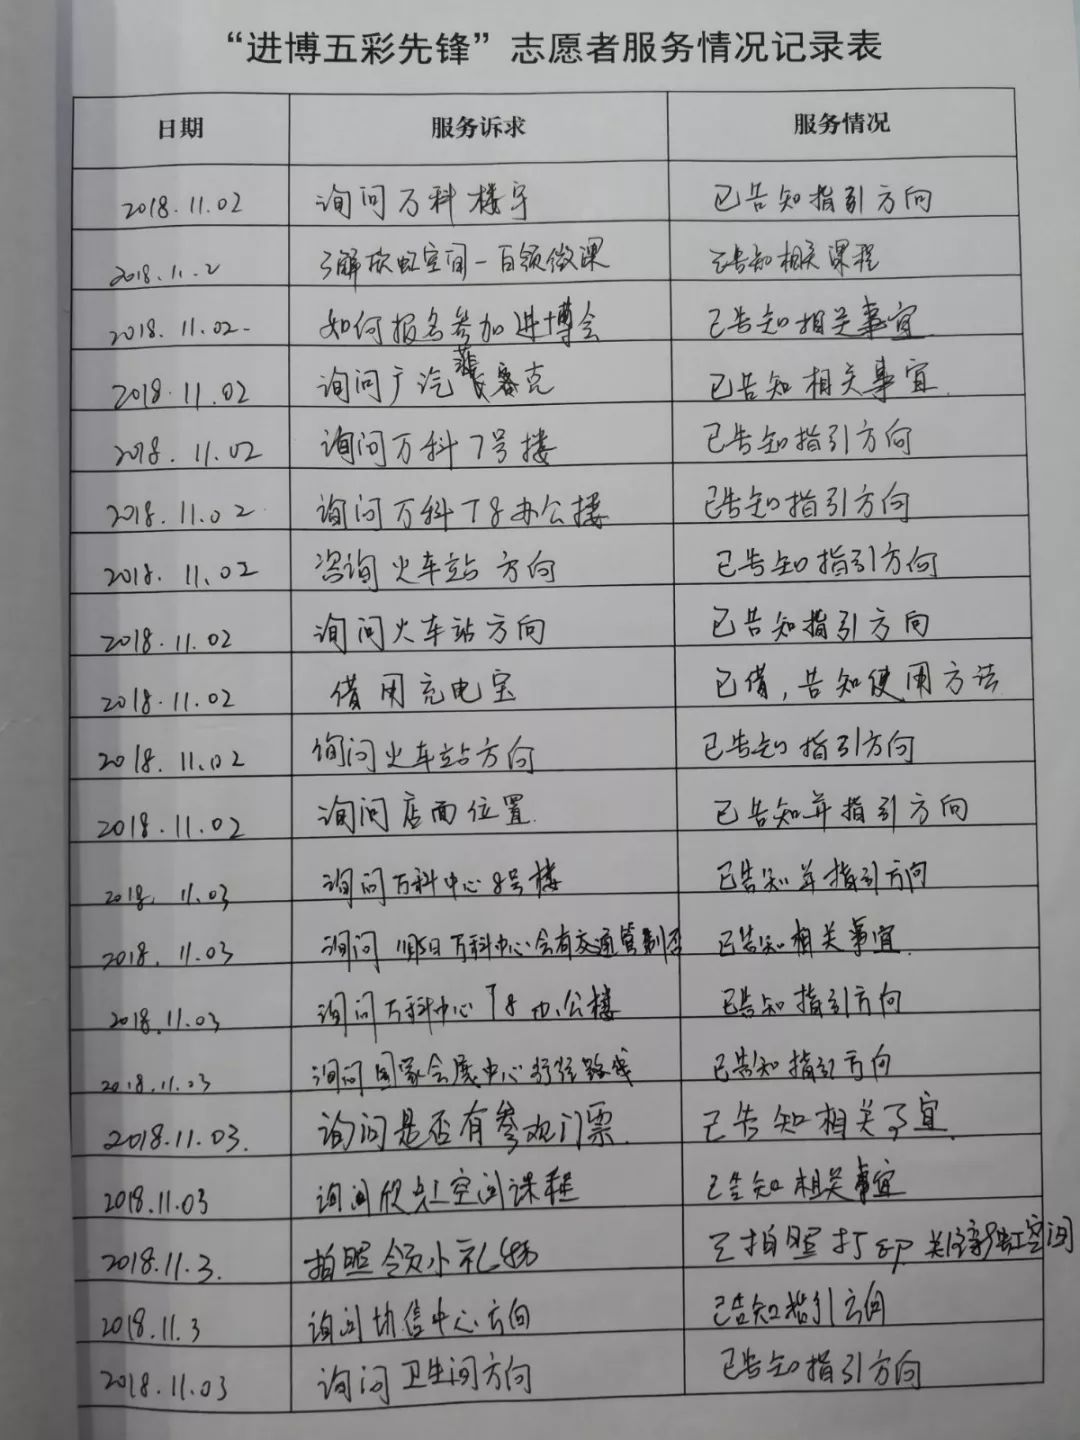 “进博五彩先锋”志愿者服务情况记录表
日期 服务诉求 服务情况
2018.11.02 询问万科楼宇 已告知指引方向
2018.11.2 了解欣虹空间-白领微课 已告知相关课程
2018.11.02. 如何报名参加进博会 已告知相关事宜
2018.11.02 询问广汽菲克 已告知相关事宜.
2018.11.02 询问万科7号楼 已告知指引方向
2018.11.02 询问万科T8办公楼 已告知指引方向
2018.11.02 咨询火车站方向 已告知指引方向
2018.11.02 询问火车站方向 已告知指引方向
2018.11.02 借用充电宝 已借,告知使用方法
2018.11.02 询问火车站方向 已告知指引方向
2018.11.02 询问店面位置. 已告知并指引方向
2018.11.03 询问万科中心8号楼 已告知并指引方向
2018.11.03 询问 万科中心会有交通管制否 已告知相关事宜
2018.11.03 询问万科中心T8办公楼 已告知指引方向
2018.11.03 询问国家会展中心行径路线 已告知指引方向
2018.11.03. 询问是否有参观门票. 已告知相关事宜.
2018.11.03 询问欣虹空间课程 已告知相关事宜
2018.11.3. 拍照领小礼物 已拍照打印 关注 虹空间
2018.11.3 询问协信中心方向 已告知指引方向
2018.11.03 询问卫生间方向 已告知指引方向